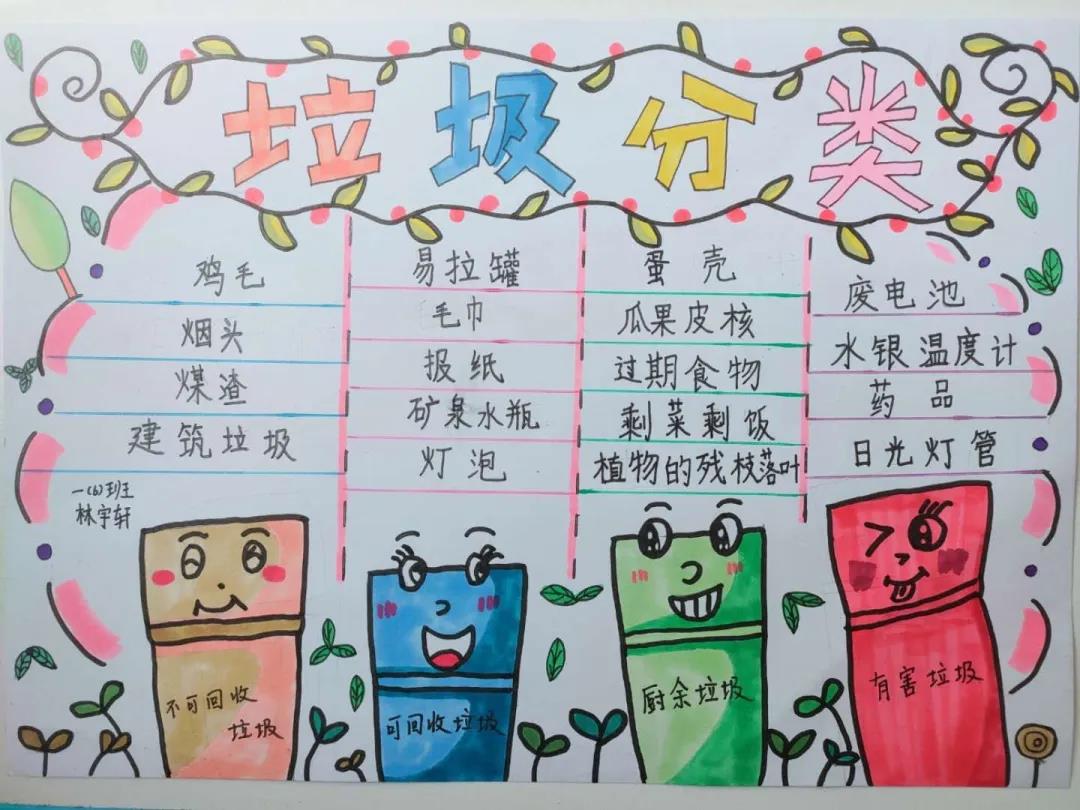 垃圾分类
鸡毛
烟头
煤渣
建筑垃圾
易拉罐
毛巾
报纸
矿泉水瓶
灯泡
蛋壳
瓜果皮核
过期食物
剩菜剩饭
植物的残枝落叶
废电池
水银温度计
药品
日光灯管
一(6)班王
林宇轩
不可回收
垃圾
可回收垃圾
厨余垃圾
有害垃圾